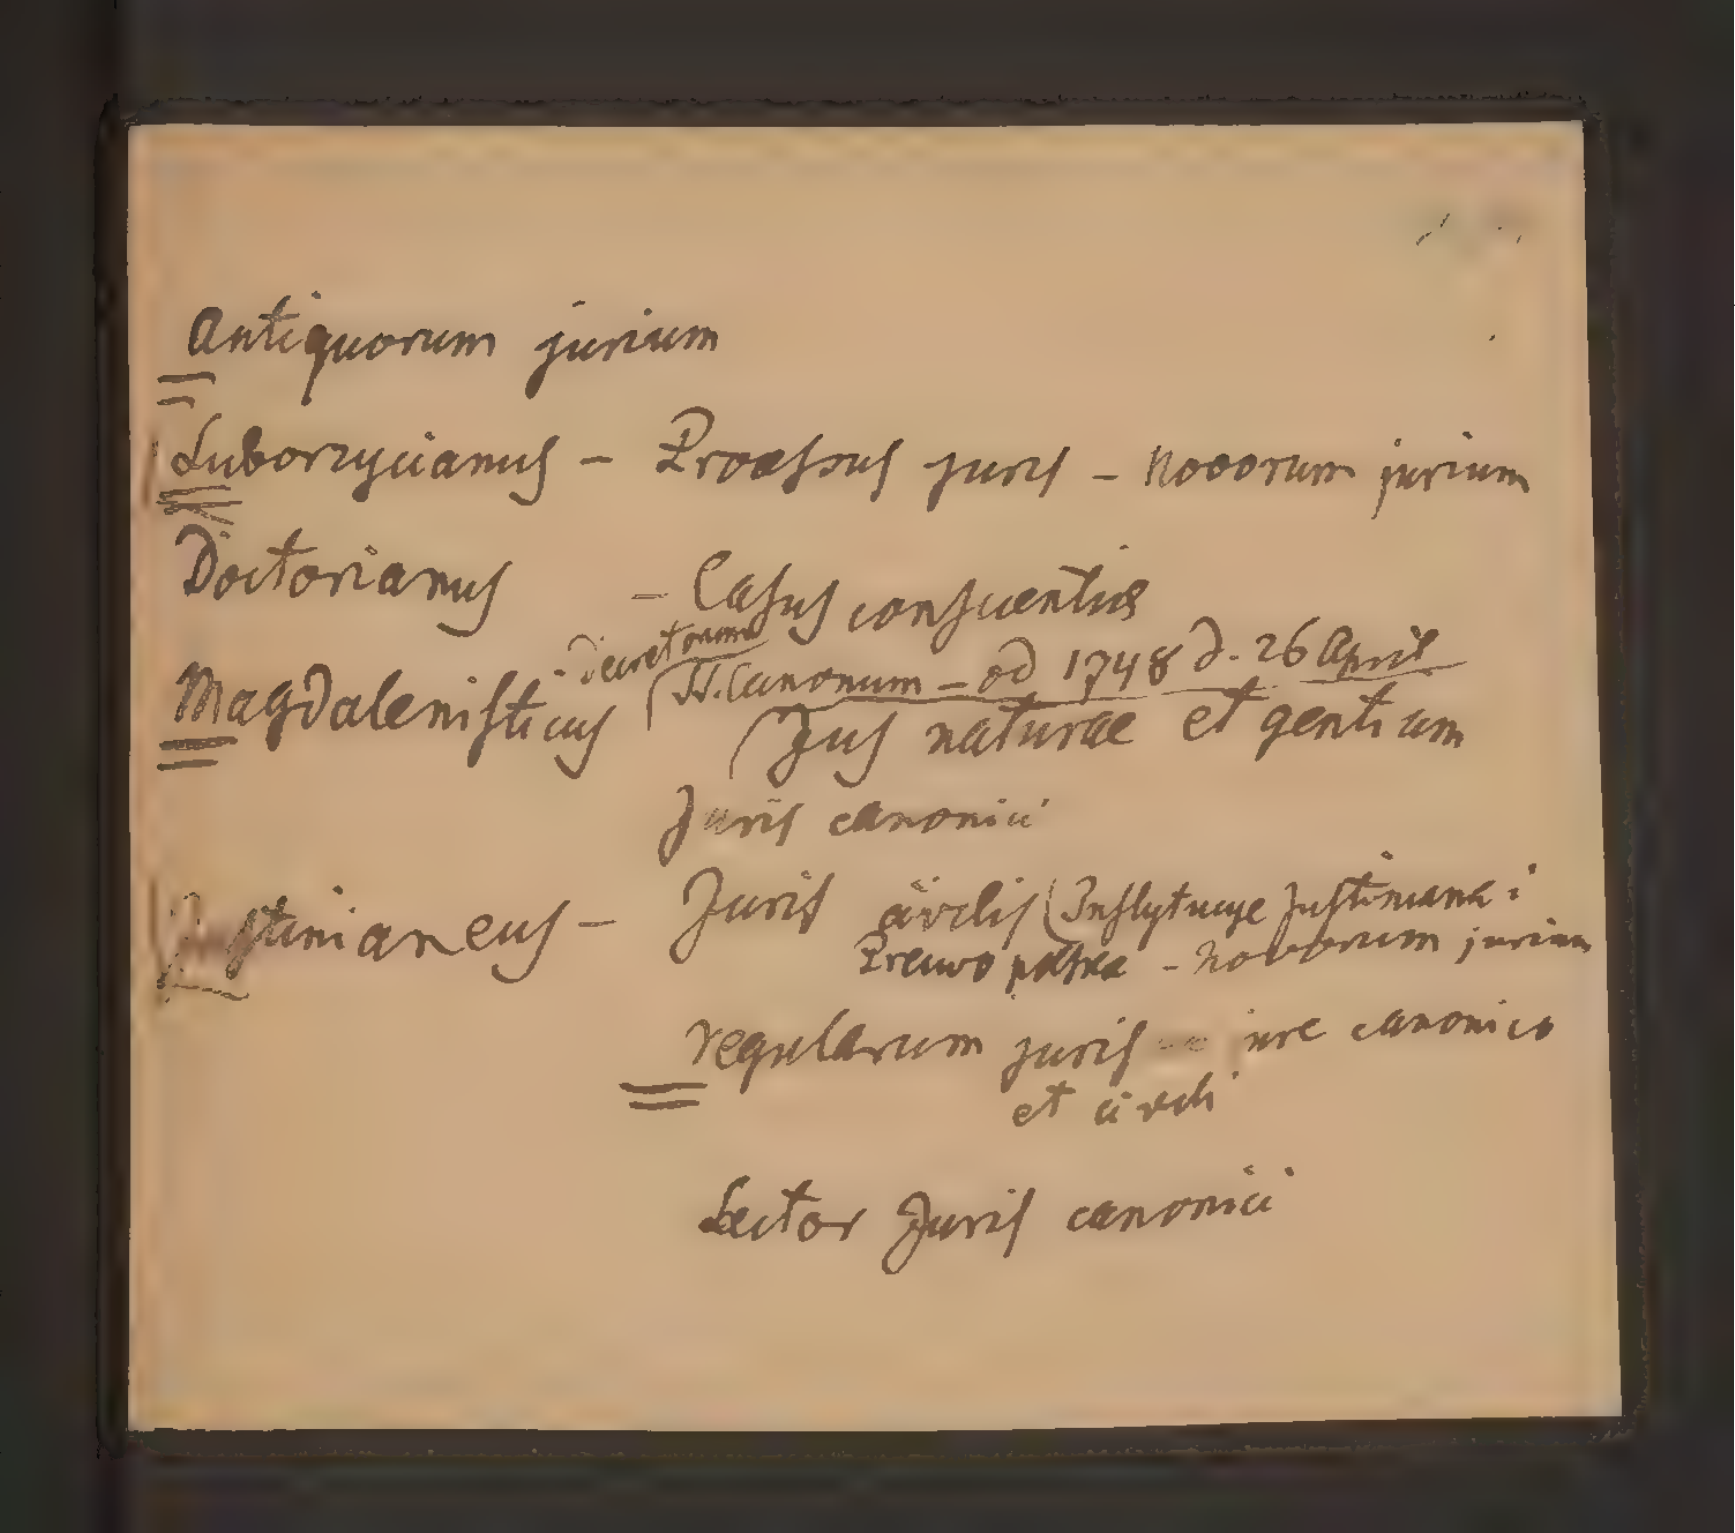 Antiquorum jurium
Luborzycianus - Processus juris - Novorum jurium
Doctorianus - Casus conscientiae
- Decretorum
SS. Canonum - od 1748 d. 26 April
Magdalenisticus Jus naturae et gentium
Juris canonici
Justinianeus - Juris civilis (Instytucye Justiniana i
Prawo polskie - Novorum jurium
regularum juris jure canonico
et civili
Lector Juris canonici